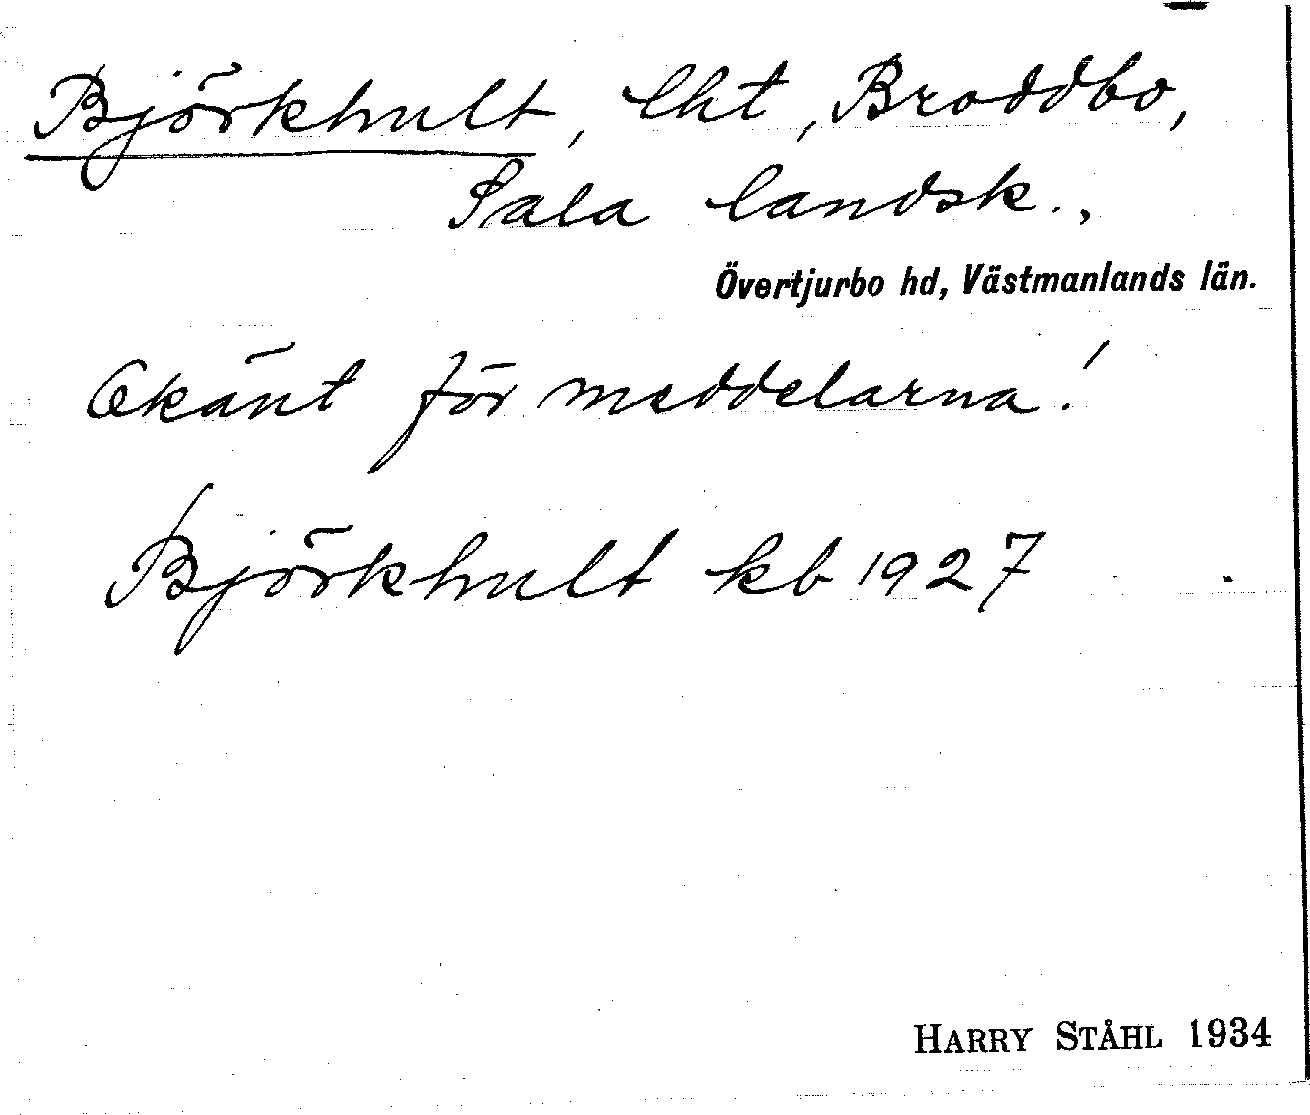 Björkhult, lht, Broddbo,
Sala landsk.,
Övertjurbo hd, Västmanlands län.
Okänt för meddelarna!
Björkhult kb 1927
HARRY STÅHL 1934